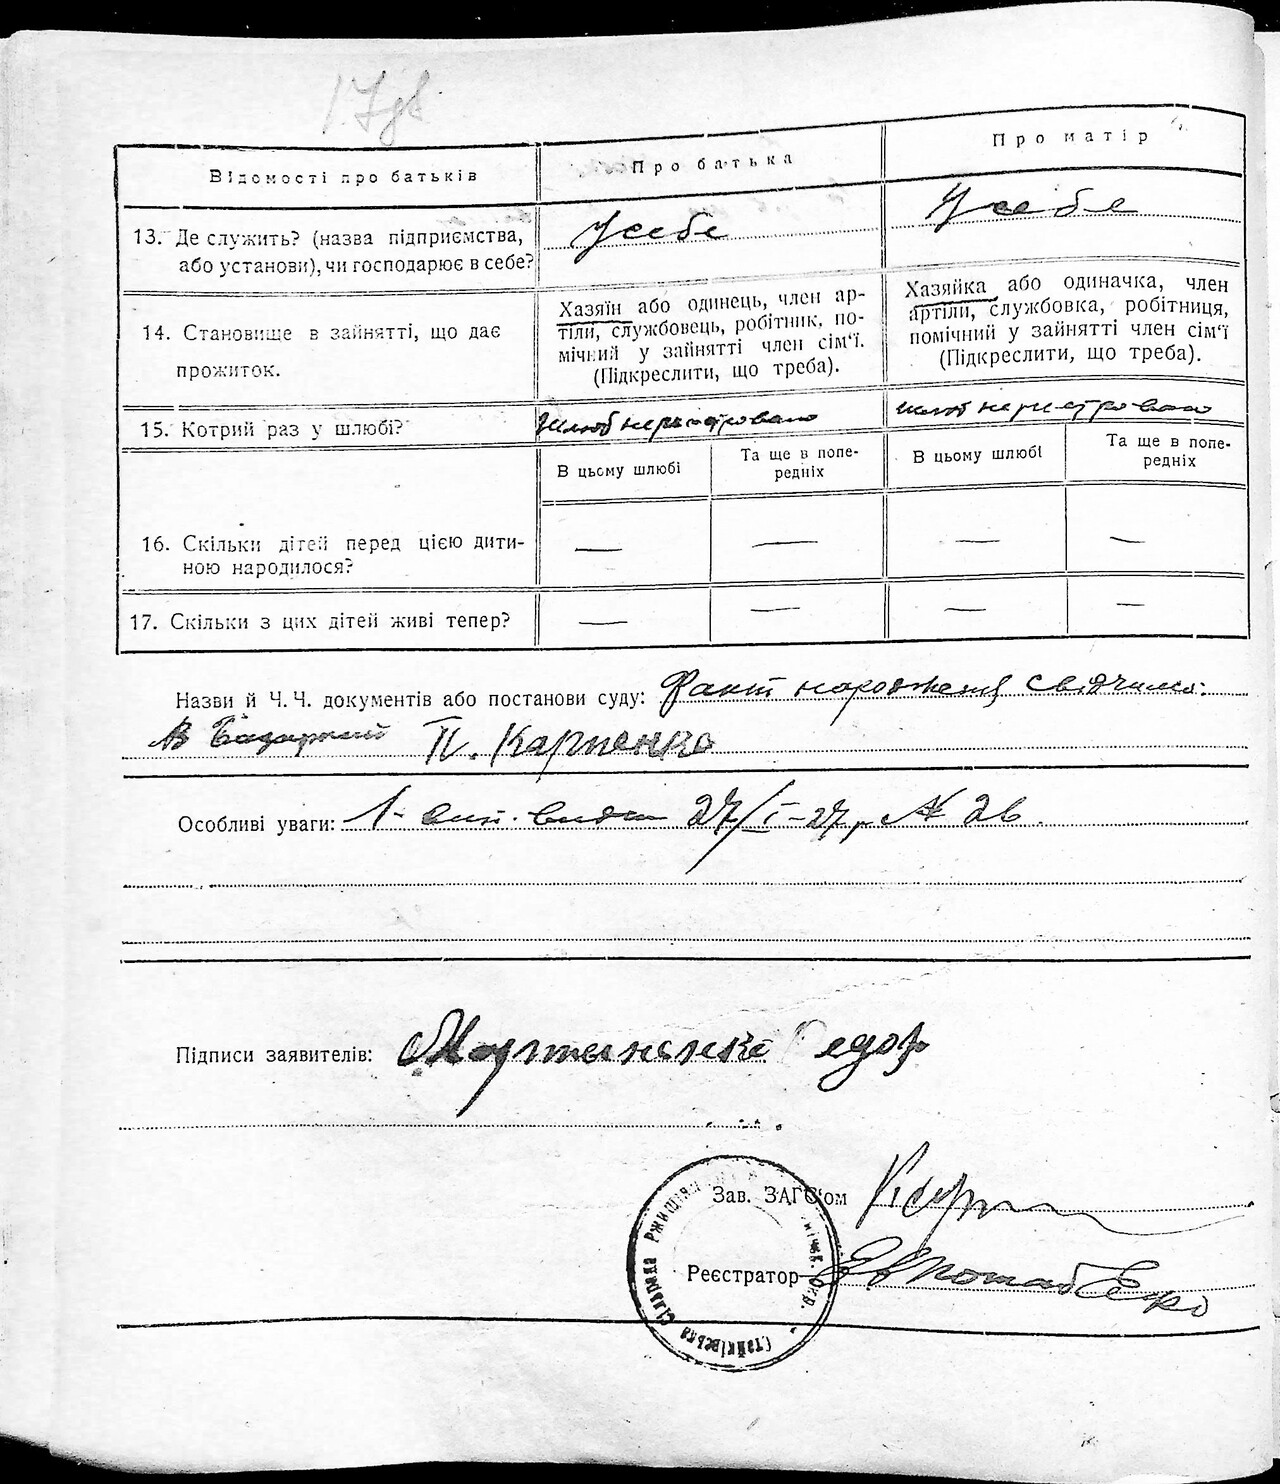 Відомості про батьків
Про батька
Про матір
13. Де служить? (назва підприємства,
або установи), чи господарює в себе?
У себе
У себе
14. Становище в зайнятті, що дає
прожиток.
Хазяїн або одинець, член ар-
тіли, службовець, робітник, по-
мічний у зайнятті член сім'ї.
(Підкреслити, що треба).
Хазяйка або одиначка, член
артіли, службовка, робітниця,
помічний у зайнятті член сім'ї
(Підкреслити, що треба).
15. Котрий раз у шлюбі?
Шлюб
шлюб
В цьому шлюбі
Та ще в попе-
редніх
В цьому шлюбі
Та ще в попе-
редніх
16. Скільки дітей перед цією дити-
ною народилося?
— — — —
17. Скільки з цих дітей живі тепер?
— — — —
Назви й Ч.Ч. документів або постанови суду: Факт народження свідчили:
П. Карпенко
Особливі уваги: 1- 27/I-27, № 26
Підписи заявителів: Мартиненко Федор
Зав. ЗАГС'ом
Реєстратор
Стайківська Сільрада Ржищів Окр.